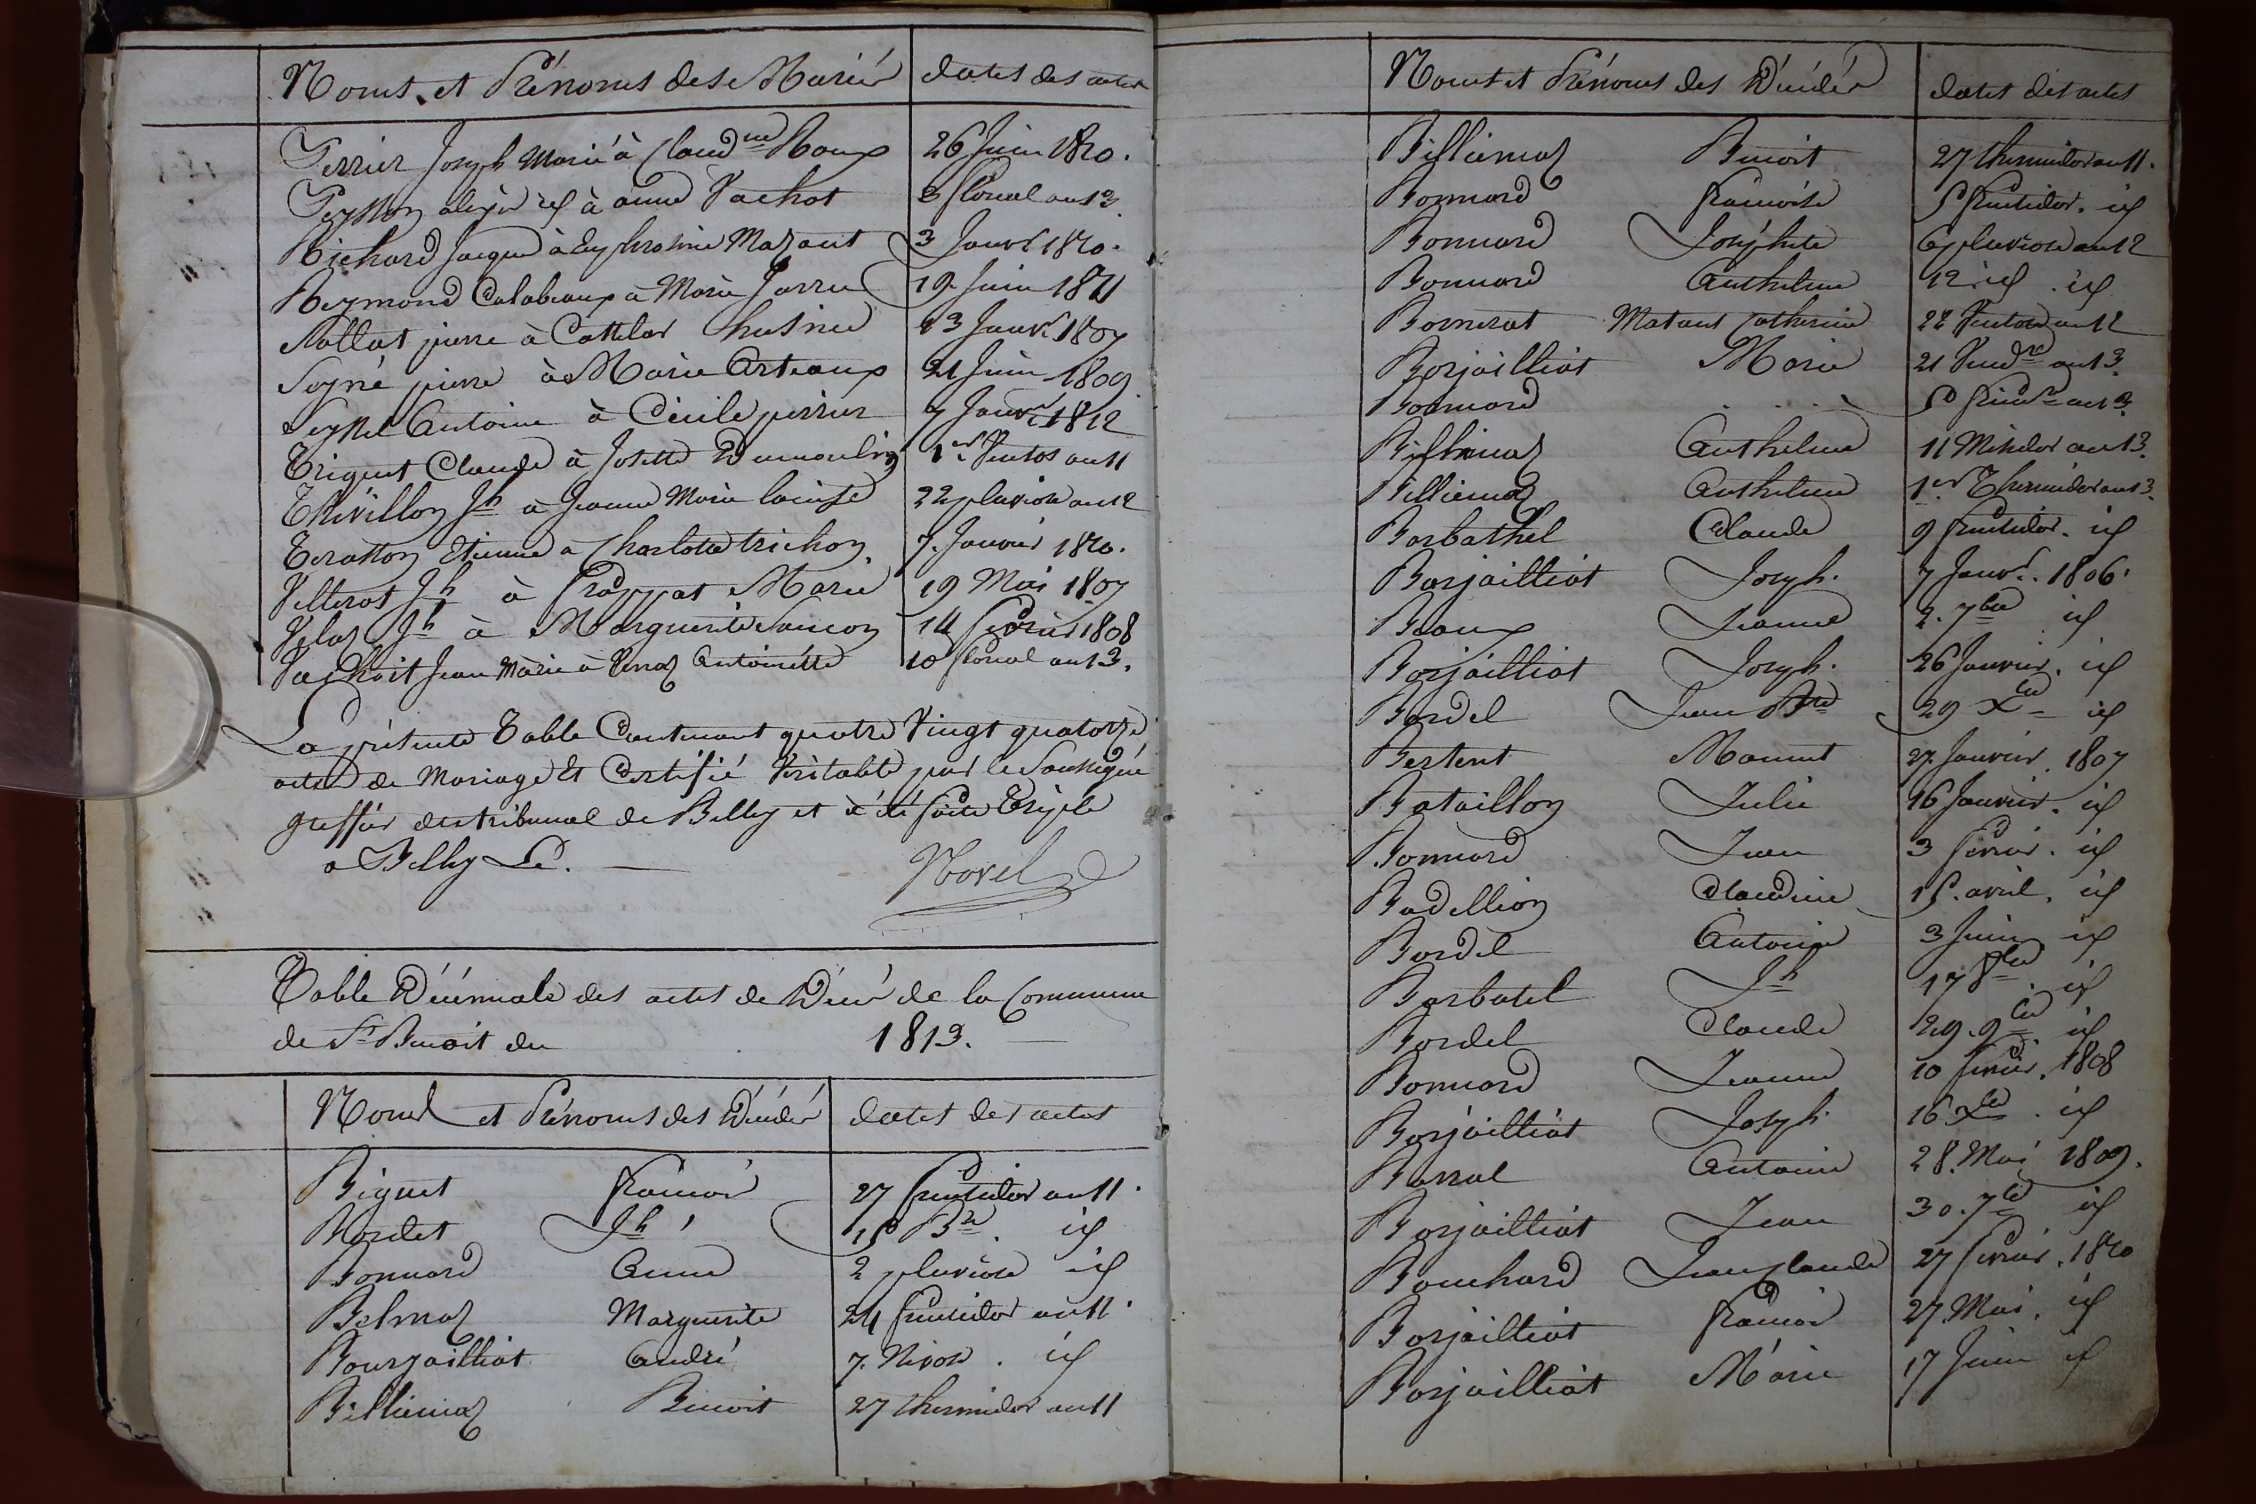 Noms et Prénoms des Mariés dates des actes
Perrier Joseph Marié à Claud.ne Roux 26 Juin 1810.
à anne Vachot 3 floreal an 13.
Richard Jacque à Euphrosine Mazant 3 Janvr 1810.
Reymond à Marie Jarru 19 Juin 1811
pierre à 23 Janvr 1807
pierre à Marie 21 Juin 1809
Seyssel Antoine à Cécile perrier 7 Janvr 1812
Triquet Claude à Josette Dumoulin 1er Ventos an 11
Thévillon Jh à Jeanne Marie 22 pluviose an 12
Etienne à Charlotte trichon 7. Janvier 1810.
Velleras Jh à Marie 19 Mai 1807
Jh à Marguerite 14 février 1808
Vachoit Jean Marie à Antoinette 10 floreal an 13.
La présente Table Contenant quatre Vingt quatorze
actes de Mariage Et Certifié Véritable par le Soussigné
greffier du tribunal de Belley et à été faite triple
a Belley Le.
Novel
Table Décennale des actes de Décès de la Commune
de St Benoit du 1813.
Noms et Prénoms des Décédés dates des actes
Biguet francois 27 fructidor an 11.
Bordet Jh 15 Bre. id
Bonnard Anne 2 pluviose id
Belmaz Marguerite 24 fructidor an 11.
Bourjailliat André 7. Nivose. id
Billiemaz Benoit 27 thermidor an 11
Noms et Prénoms des Décédés dates des actes
Billiemaz Benoit 27 thermidor an 11.
Bonnard francoise 5 fructidor. id
Bonnard Joséphite 6 pluviose an 12
Bonnard Anthelme 12 id. id
Bornerat Matant Catherine 22 Ventose an 12
Borjailliat Marie 21 Vendre an 13.
Bonnard . . . 5 frimre an 13
Billiemaz Anthelme 11 Messidor an 13.
Billiemaz Anthelme 1er Thermidor an 13.
Barbathel Claude 9 fructidor. id
Borjailliat Joseph. 7 Janvr. 1806.
Baoux Jeanne 2. 7bre id
Borjailliat Joseph. 26 Janvier. id
Bardel Jean Bte 29 Xbre id
Bertent Mamert 27. Janvier. 1807
Bataillon Julie 16 Janvier. id
Bonnard Jean 3 février. id
Badellion Claudine 15. avril. id
Bordel Antoine 3 Juin id
Barbatel Jh 17 8bre. id
Bordel Claude 29. 9bre id
Bonnard Jeanne 10 février. 1808
Borjailliat Joseph 16 Xbre. id
Barral Antoine 28. Mai 1809.
Borjailliat Jean 30. 7bre id
Bouchard Jean Claude 27 février. 1810
Borjailliat francois 27. Mai. id
Borjailliat Marie 17 Juin id